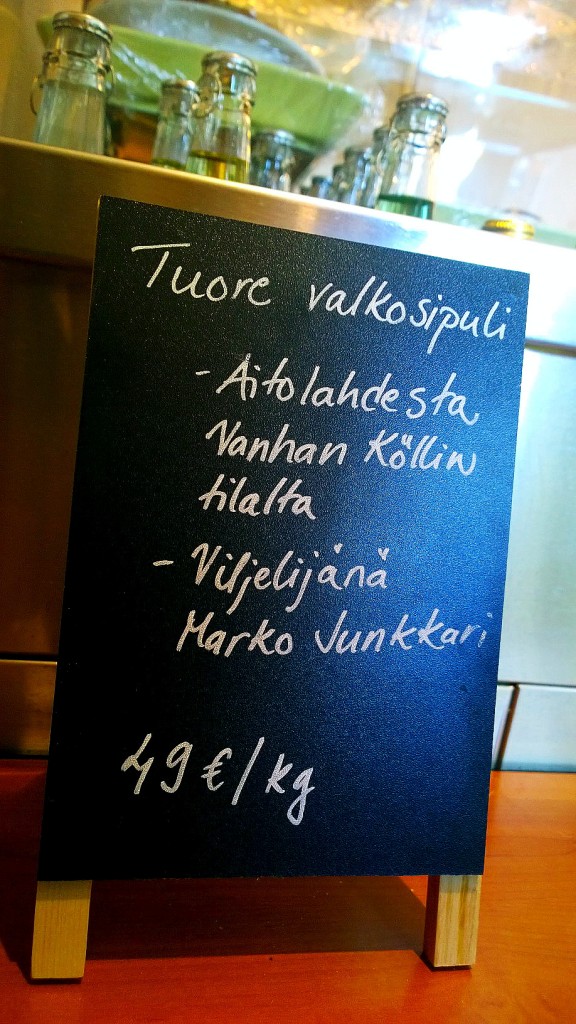 Tuore valkosipuli
- Aitolahdesta
Vanhan Köllin
tilalta
- Viljelijänä
Marko Junkkari
49 €/kg